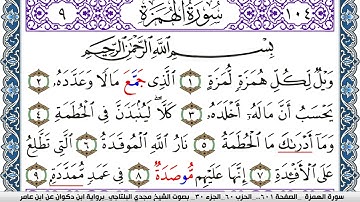 ٩ سُورَةُ الْهُمَزَةِ ١٠٤
بِسْمِ اللَّهِ الرَّحْمَٰنِ الرَّحِيمِ
وَيْلٌ لِّكُلِّ هُمَزَةٍ لُّمَزَةٍ ١ الَّذِي جَمَّعَ مَالًا وَعَدَّدَهُ ٢
يَحْسَبُ أَنَّ مَالَهُ أَخْلَدَهُ ٣ كَلَّا لَيُنبَذَنَّ فِي الْحُطَمَةِ ٤
وَمَا أَدْرَىٰكَ مَا الْحُطَمَةُ ٥ نَارُ اللَّهِ الْمُوقَدَةُ ٦ الَّتِي تَطَّلِعُ
عَلَى الْأَفْئِدَةِ ٧ إِنَّهَا عَلَيْهِم مُّوصَدَةٌ ٨ فِي عَمَدٍ مُّمَدَّدَةٍ ٩
سورة الهمزة _ الصفحة ٦٠١ _ الحزب ٦٠ _ الجزء ٣٠ _ بصوت الشيخ مجدي البلتاجي _ برواية ابن ذكوان عن ابن عامر